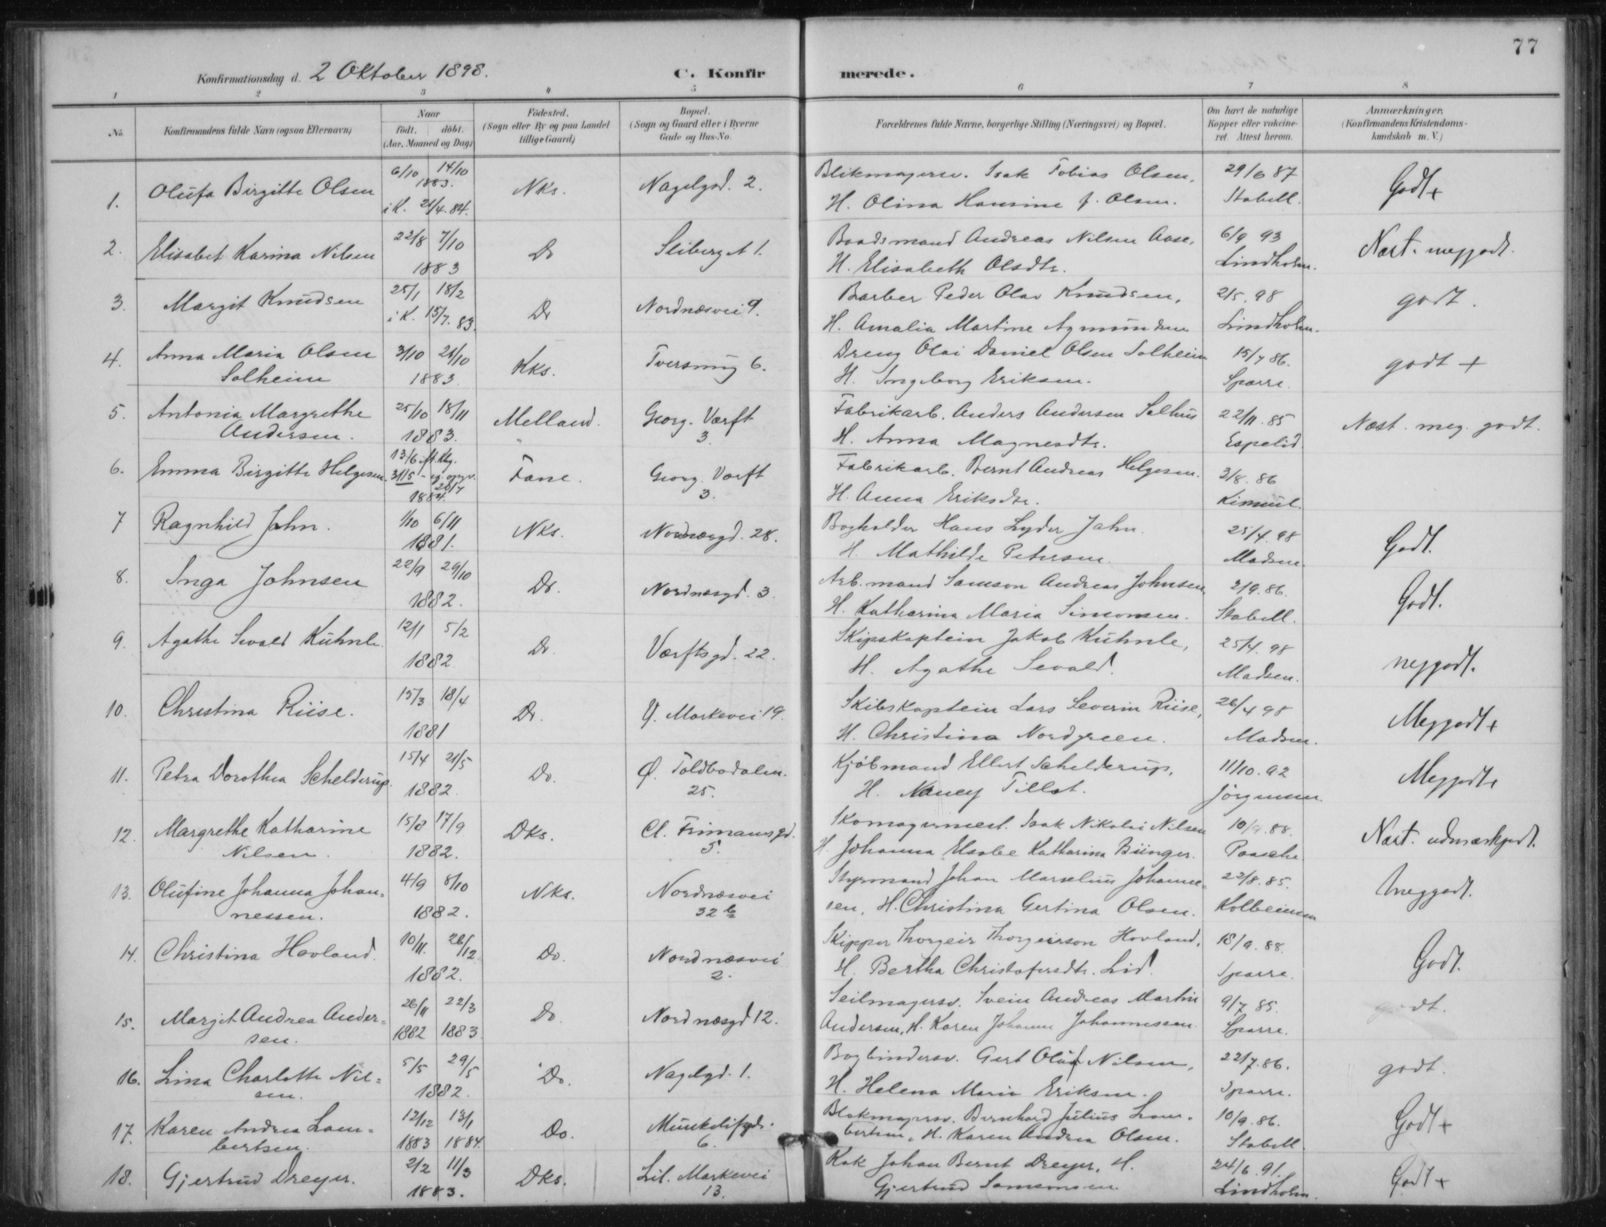 77
Konfirmationsdag d. 2 Oktober 1898. C. Konfirmerede.
1 2 3 4 5 6 7 8
No. Konfirmandens fulde Navn (ogsaa Efternavn) Naar født, døbt. (Aar, Maaned og Dag) Fødested. (Sogn eller By og paa Landet tillige Gaard) Bopæl. (Sogn og Gaard eller i Byerne Gade og Hus-No. Forældrenes fulde Navne, borgerlige Stilling (Næringsvei) og Bopæl. Om havt de naturlige Kopper eller vaccineret. Attest herom. Anmærkninger. (Konfirmandens Kristendomskundskab m. V.)
1. Olufa Birgitte Olsen 6/10 14/10 1883. i K. 21/4.84. Nks. Nagelgd. 2. Blikmagersv. Isak Tobias Olsen,
H. Olina Hansine f. Olsen. 29/6 87 Stabell. Godt+
2. Elisabet Karina Nilsen 22/8 7/10 1883 Do Sliberg. A 1. Baadsmand Andreas Nilsen Aase,
H. Elisabeth Olsdtr. 6/9 93 Lindholm. Næst. meggodt.
3 Margit Knudsen 25/1 18/2 i K. 15/7. 83. Do Nordnæsvei 9. Barber Peder Olav Knudsen,
H. Amalia Martine Agmundsen 2/5 98 Lindholm. godt.
4. Anna Maria Olsen
Solheim 3/10 28/10 1883. Kks. Tversmug 6. Dreng Olai Daniel Olsen Solheim
H. Ingeborg Eriksen. 15/7 86. Sparre. godt +
5. Antonia Margrethe
Andersen. 25/10 18/11 1883. Melland. Georg. Værft
3. Fabrikarb. Anders Andersen Solhus
H. Anna Magnesdtr. 22/11 85 Espelid Næst. meg. godt.
6. Emma Birgitte Helgesen. 13/6 31/5 1884. Fane. Georg. Værft
3. Fabrikarb. Bernt Andreas Helgesen.
H. Anna Eriksdtr. 3/8. 86
7 Ragnhild Jahn. 1/10 6/11 1881. Nks. Nordnæsgd. 28. Bogholder Hans Lyder Jahn.
H. Mathilde Petersen. 25/4 98 Madsen. Godt.
8. Inga Johnsen 22/9 29/10 1882. Do. Nordnæsgd. 3. Arb.mand Samson Andreas Johnsen,
H. Katharina Maria Simonsen. 2/9. 86. Stabell. Godt.
9. Agathe Sevald Kühnle. 12/1 5/2 1882 Do. Værftsgd. 22. Skipskaptein Jakob Kühnle,
H. Agathe Sevald. 25/4. 98 Madsen. meggodt.
10. Christina Riise. 15/3 18/4 1881 Do. Y. Markevei 19. Skibskaptein Lars Severin Riise,
H. Christina Nordgreen. 26/4 98 Madsen. Meggodt+
11. Petra Dorothea Schelderup. 15/4 21/5 1882. Do. Ø. Toldbodalm.
25. Kjøbmand Ellert Schelderup,
H. Nancy Tillot. 11/10. 92 Jörgensen. Meggodt+
12. Margrethe Katharine
Nilsen. 15/8 17/9 1882. DKs. Cl. Frimansgd.
5. Skomagermest. Isak Nikolai Nilsen
H. Johanna Elsabe Katharina Bünger. 10/9.88. Paasche Næst. udmærketgodt.
13. Olufine Johanna Johan-
nessen. 4/9 8/10 1882. Nks. Nordnæsvei
32 b Styrmand Johan Marselius Johannes-
sen, H. Christina Gertina Olsen. 22/8. 85. Kolbeinsen Meggodt.
14. Christina Hovland. 10/11. 26/12 1882. Do. Nordnæsvei
2. Skipper Thorgeir Thorgeirson Hovland,
H. Bertha Christofersdtr. Lid. 18/9. 88. Sparre. Godt.
15. Margit Andrea Ander-
sen. 26/11 22/3 1882 1883 Do. Nordnæsgd 12. Seilmagersv. Svein Andreas Martin
Andersen, H. Karen Johanne Johannessen 9/7 85. Sparre. godt.
16. Lina Charlotte Nil-
sen. 5/5 29/5 1882. Do. Nagelgd. 1. Bogbindersv. Gert Oluf Nilsen,
H. Helena Maria Eriksen. 22/7.86. Sparre. godt.
17. Karen Andrea Lam-
bertsen. 12/12 13/1 1883 1884 Do. Munkelifgd.
6. Blokmagersv. Bernhard Julius Lam-
bertsen, H. Karen Andrea Olsen. 10/9. 86. Stabell. Godt+
18. Gjertrud Dreyer. 2/2 11/3 1883. DKs. Lil. Markevei
13. Kok Johan Bernt Dreyer, H.
Gjertrud Samsonsen 24/6. 91. Lindholm. Godt+